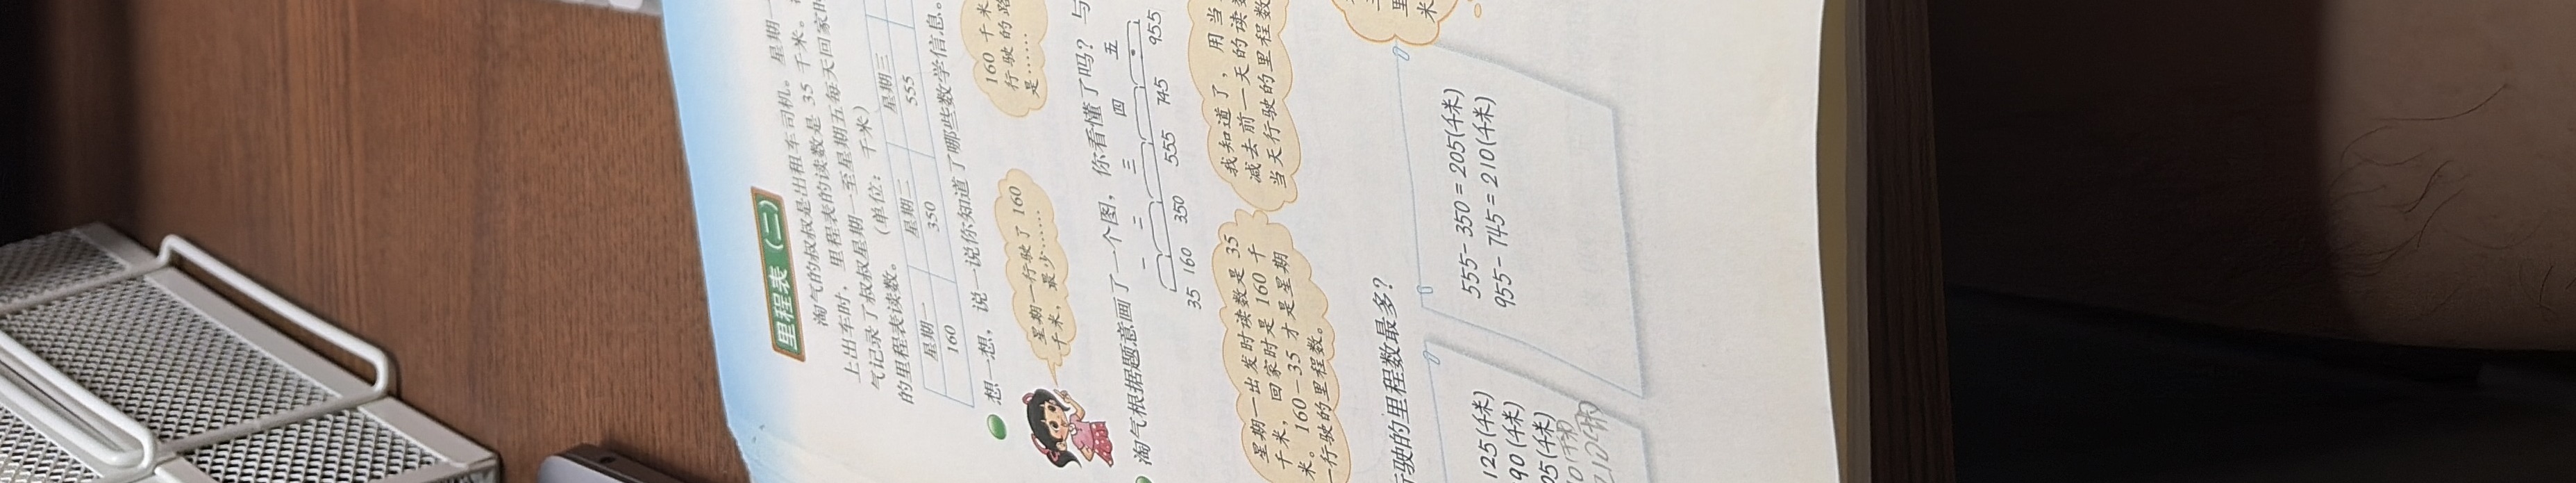 里程表（二）
淘气的叔叔是出租车司机。星期一
上出车时，里程表的读数是 35 千米。
气记录了叔叔星期一至星期五每天回家时
的里程表读数。（单位：千米）
星期一 星期二 星期三
160 350 555
想一想，说一说你知道了哪些数学信息。
星期一行驶了 160
千米，最少……
160 千米
行驶的路
是……
淘气根据题意画了一个图，你看懂了吗？与
一 二 三 四 五
35 160 350 555 745 955
星期一出发时读数是 35
千米，回家时是 160 千
米。160－35 才是星期
一行驶的里程数。
我知道了，用当
减去前一天的读数
当天行驶的里程数
行驶的里程数最多？
125(千米)
90(千米)
05(千米)
210(千米)
555－350＝205(千米)
955－745＝210(千米)